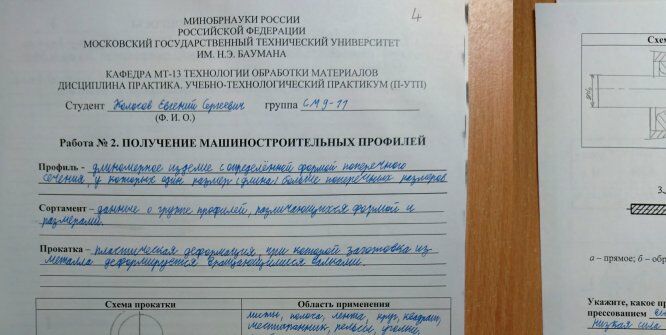 4
МИНОБРНАУКИ РОССИИ
РОССИЙСКОЙ ФЕДЕРАЦИИ
МОСКОВСКИЙ ГОСУДАРСТВЕННЫЙ ТЕХНИЧЕСКИЙ УНИВЕРСИТЕТ
ИМ. Н.Э. БАУМАНА
КАФЕДРА МТ-13 ТЕХНОЛОГИИ ОБРАБОТКИ МАТЕРИАЛОВ
ДИСЦИПЛИНА ПРАКТИКА. УЧЕБНО-ТЕХНОЛОГИЧЕСКИЙ ПРАКТИКУМ (П-УТП)
Студент Колосов Евгений Сергеевич группа СМ9-11
(Ф. И. О.)
Работа № 2. ПОЛУЧЕНИЕ МАШИНОСТРОИТЕЛЬНЫХ ПРОФИЛЕЙ
Профиль - длиномерное изделие с определённой формой поперечного
сечения, у которых один размер (длина) больше поперечных размеров
Сортамент - данные о группе профилей, различающихся формой и
размерами.
Прокатка - пластическая деформация при которой заготовка из
металла деформируется вращающимися валками.
Схема прокатки
Область применения
листы, полоса, лента, круг, квадрат,
шестигранник, рельсы, уголки,
Схем
3.
а – прямое; б – обр
Укажите, какое пр
прессованием
низкая сила